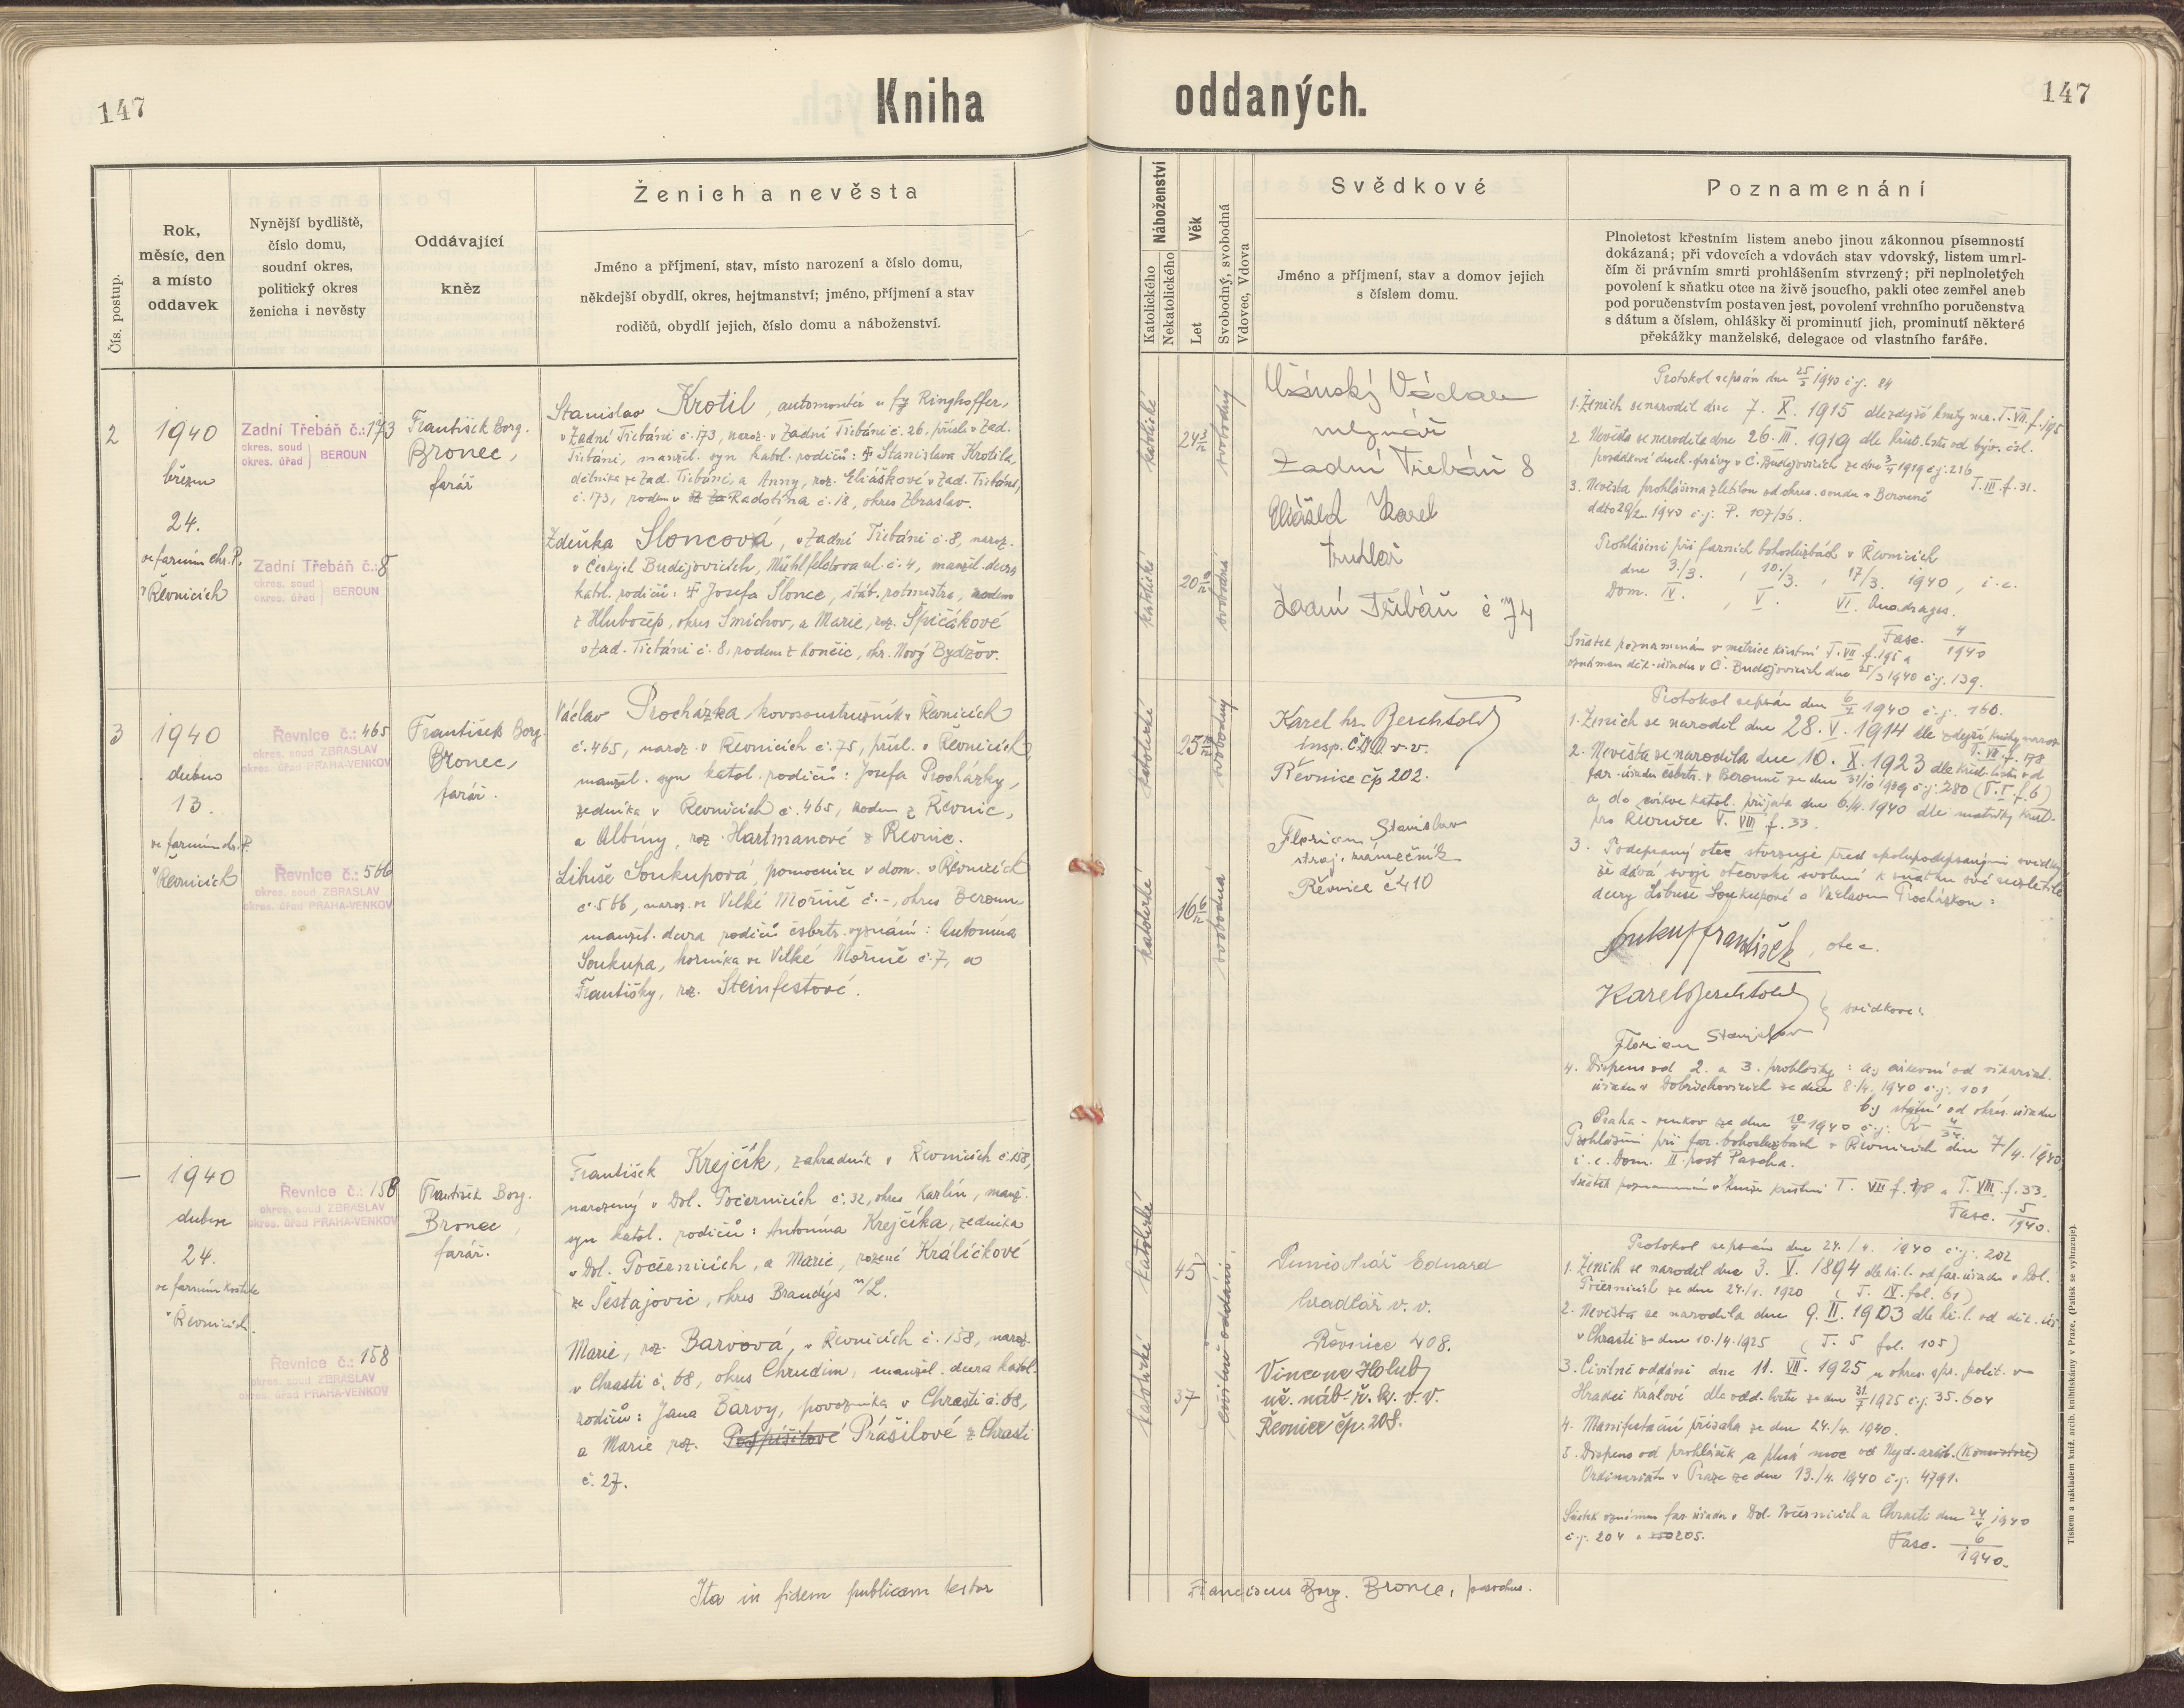 147
Kniha
oddaných.
147
Čís. postup.
Rok,
měsíc, den
a místo
oddavek
Nynější bydliště,
číslo domu,
soudní okres,
politický okres
ženicha i nevěsty
Oddávající
kněz
Ženich a nevěsta
Jméno a příjmení, stav, místo narození a číslo domu,
někdejší obydlí, okres, hejtmanství; jméno, příjmení a stav
rodičů, obydlí jejich, číslo domu a náboženství.
Katolického
Nekatolického
Náboženství
Let
Věk
Svobodný, svobodná
Vdovec, Vdova
Svědkové
Jméno a příjmení, stav a domov jejich
s číslem domu.
Poznamenání
Plnoletost křestním listem anebo jinou zákonnou písemností
dokázaná; při vdovcích a vdovách stav vdovský, listem umrl-
čím či právním smrti prohlášením stvrzený; při neplnoletých
povolení k sňatku otce na živě jsoucího, pakli otec zemřel aneb
pod poručenstvím postaven jest, povolení vrchního poručenstva
s dátum a číslem, ohlášky či prominutí jich, prominutí některé
překážky manželské, delegace od vlastního faráře.
2
1940
březen
24.
ve farním chr. P.
v Řevnicích
Zadní Třebáň č.: 173
okres. soud
okres. úřad } BEROUN
Zadní Třebáň č.: 8
okres. soud
okres. úřad } BEROUN
František Borg.
Bronec,
farář
Stanislav Krotil, automontér u fy Ringhoffer,
v Zadní Třebáni č. 173, naroz. v Zadní Třebáni č. 26, přísl. v Zad.
Třebáni, manžel. syn katol. rodičů: ✝ Stanislava Krotila,
dělníka ze Zad. Třebáni, a Anny, roz. Eliáškové v Zad. Třebáni,
č. 173, rodem z Radotína č. 18, okres Zbraslav.
Zdeňka Sloncová, v Zadní Třebáni č. 8, naroz.
v Českých Budějovicích, Mühlfeldova ul. č. 4, manžel. dcera
katol. rodičů: ✝ Josefa Slonce, stáb. rotmistra, rodem
z Hlubočep, okres Smíchov, a Marie, roz. Špičákové
v Zad. Třebáni č. 8, rodem z Končic, okr. Nový Bydžov.
katolické
24 5/12
svobodný
katolické
20
svobodná
Václav
mlynář
Zadní Třebáň 8
Eliášek Karel
truhlář
Zadní Třebáň č 74
Protokol sepsán dne 25/2 1940 č.j. 84
1. Ženich se narodil dne 7. X. 1915 dle zdejší knihy nar. T. VII. f. 195
2. Nevěsta se narodila dne 26. III. 1919 dle křest. listu od býv. čsl.
posádkové duch. správy v Č. Budějovicích ze dne 3/4 1919 č.j. 216
T. III. f. 31.
3. Nevěsta prohlášena zletilou od okres. soudu v Berouně
ddto 29/2. 1940 č.j. P. 107/36.
Prohlášeni při farních bohoslužbách v Řevnicích
dne 3./3. , 10./3. , 17/3. 1940, i. e.
Dom. IV. , V. VI. Quadrages.
Fasc. 4/1940
Sňatek poznamenán v matrice křestní T. VII. f. 195 a
oznámen děk. úřadu v Č. Budějovicích dne 25/3 1940 č.j. 139.
3
1940
duben
13.
ve farním chr. P.
v Řevnicích
Řevnice č.: 465
okres. soud ZBRASLAV
okres. úřad PRAHA-VENKOV
Řevnice č.: 566
okres. soud ZBRASLAV
okres. úřad PRAHA-VENKOV
František Borg.
Bronec,
farář.
Václav Procházka, kovosoustružník v Řevnicích
č. 465, naroz. v Řevnicích č. 75, přísl. v Řevnicích,
manžel. syn katol. rodičů: Josefa Procházky,
zedníka v Řevnicích č. 465, rodem z Řevnic,
a Albíny, roz. Hartmanové z Řevnic.
Libuše Soukupová, pomocnice v dom. v Řevnicích
č. 566, naroz. ve Velké Mořině č. -, okres Beroun
manžel. dcera rodičů čsbrtr. vyznání: Antonína
Soukupa, horníka ve Velké Mořině č. 7, a
Františky, roz. Steinfestové.
katolické
25
svobodný
katolické
16 6/12
svobodná
Karel hr. Berchtold
insp. ČSD v. v.
Řevnice čp 202.
Florian Stanislav
stroj. zámečník
Řevnice č 410
Protokol sepsán dne 6/4 1940 č.j. 160.
1. Ženich se narodil dne 28. V. 1914 dle zdejší knihy naroz.
T. VII. f. 178
2. Nevěsta se narodila dne 10. X. 1923 dle křest. listu od
far. úřadu čsbrtr. v Berouně ze dne 31/10 1939 č.j. 280 (T. I. f. 6)
a do církve katol. přijata dne 6./4. 1940 dle matriky křest.
pro Řevnice T. VIII f. 33.
3. Podepsaný otec stvrzuje před spolupodepsanými svědky
že dává svoje otcovské svolení k sňatku své nezletilé
dcery Libuše Soukupové s Václavem Procházkou:
Soukup František, otec.
Karel Berchtold
} svědkové:
Florian Stanislav
4. Dispens od 2. a 3. prohlášky: a.) církevní od vikariat.
úřadu v Dobřichovicích ze dne 8./4. 1940 č.j. 101,
b.) státní od okres. úřadu
Praha-venkov ze dne 10/4 1940 č.j. R 4/34.
Prohlášeni při far. bohoslužbách v Řevnicích dne 7/4. 1940
i. e. Dom. II. post Pascha.
Sňatek poznamenán v knize křestní T. VII f. 178 a T. VIII. f. 33.
Fasc. 5/1940.
—
1940
duben
24.
ve farním kostele
v Řevnicích.
Řevnice č.: 158
okres. soud ZBRASLAV
okres. úřad PRAHA-VENKOV
Řevnice č.: 158
okres. soud ZBRASLAV
okres. úřad PRAHA-VENKOV
František Borg.
Bronec,
farář.
František Krejčík, zahradník v Řevnicích č. 158,
narozený v Dol. Počernicích č. 32, okres Karlín, manž.
syn katol. rodičů: Antonína Krejčíka, zedníka
v Dol. Počernicích, a Marie, rozené Králíčkové
ze Šestajovic, okres Brandýs n/L.
Marie, roz. Barvová, v Řevnicích č. 158, naroz.
v Chrasti č. 68, okres Chrudim, manžel. dcera katol.
rodičů: Jana Barvy, povozníka v Chrasti č. 68,
a Marie roz. Pospíšilové Prášilové z Chrasti
č. 27.
katolické
45
katolické
37
civilně oddáni
Eduard
hradlář v. v.
Řevnice 408.
Vincenc Holub
uč. náb. ř. k. v. v.
Řevnice čp. 208.
Protokol sepsán dne 24./4. 1940 č.j. 202
1. Ženich se narodil dne 3. V. 1894 dle kř. l. od far. úřadu v Dol.
Počernicích ze dne 24./1. 1920 (T. IV. fol. 61)
2. Nevěsta se narodila dne 9. II. 1903 dle kř. l. od děk. úř.
v Chrasti ze dne 10./4. 1925 (T. 5 fol. 105)
3. Civilně oddáni dne 11. VII. 1925 u okres. spr. polit. v
Hradci Králové dle odd. listu ze dne 31/7 1925 č.j. 35.604
4. Manifestační přísaha ze dne 24./4. 1940.
5. Dispens od prohlášek a plná moc od Nejd. arcib. (Konsistoře)
Ordinariátu v Praze ze dne 13./4. 1940 č.j. 4791.
Sňatek oznámen far. úřadu v Dol. Počernicích a Chrasti dne 24/4 1940
č.j. 204 a 205.
Fasc. 6/1940.
Ita in fidem publicam testor
Franciscus Borg. Bronec, parochus.
Tiskem a nákladem kníž. arcib. knihtiskárny v Praze. (Patisk se vyhrazuje)